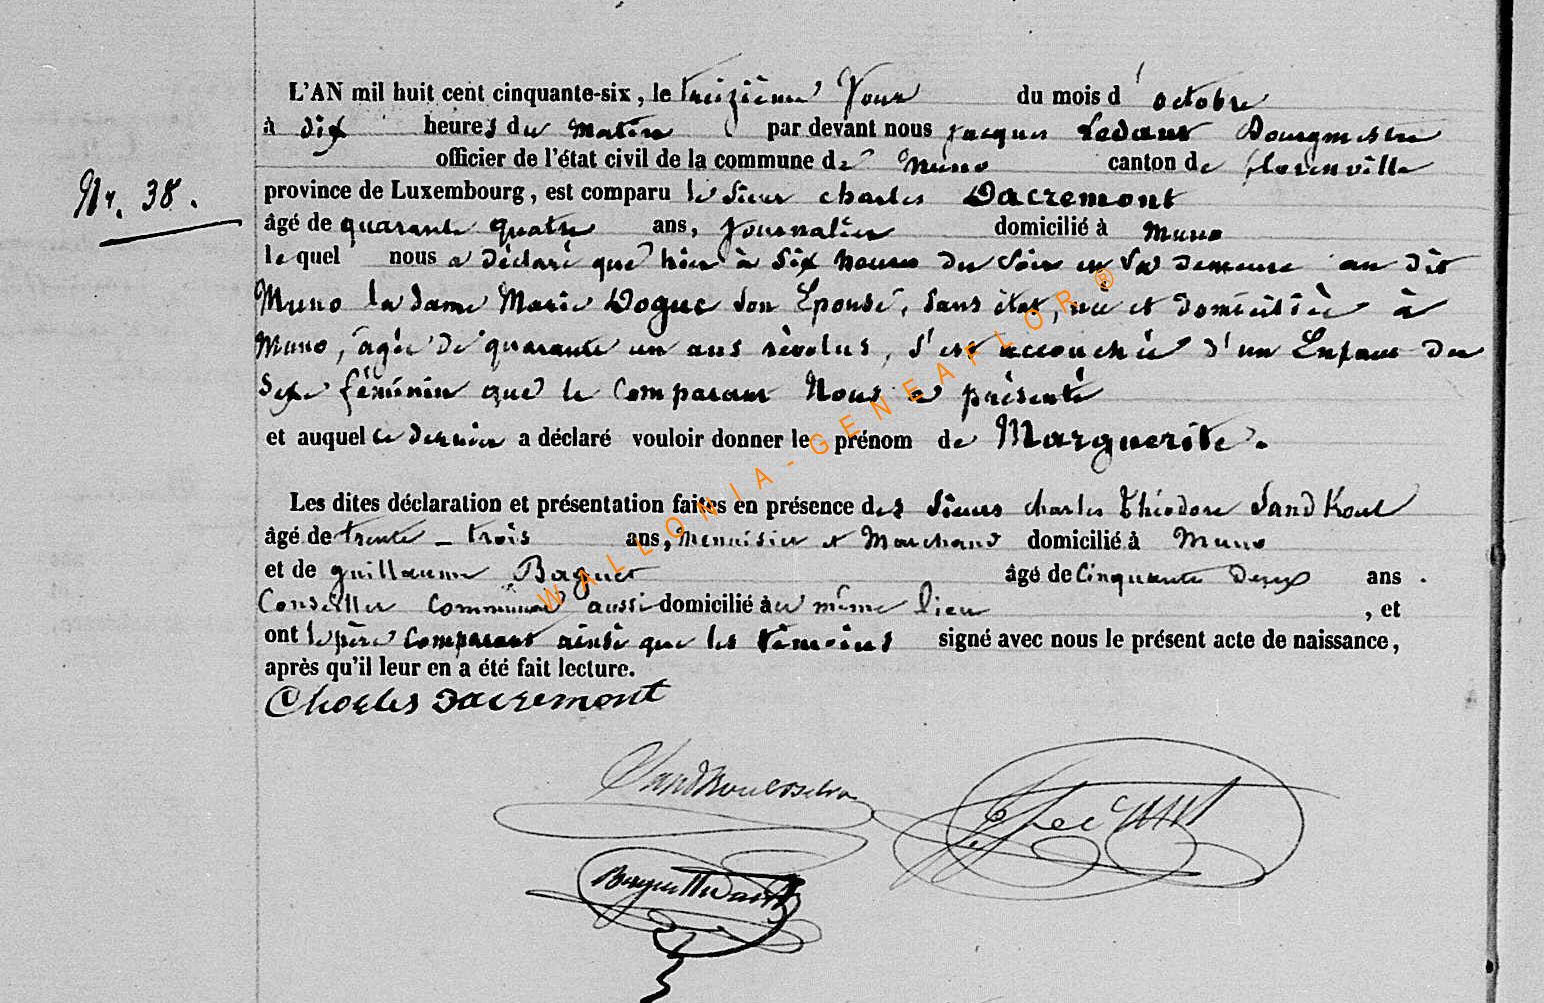 L'AN mil huit cent cinquante-six, le treizième Jour du mois d'octobre
à dix heures du Matin par devant nous Jacques Bourgmestre
officier de l'état civil de la commune de Muno canton de florenville
Nr. 38.
province de Luxembourg, est comparu le Sieur charles Dacremont
âgé de quarante quatre ans, Journalier domicilié à Muno
lequel nous a déclaré que hier à Six heures du Soir en Sa demeure au dit
Muno la dame Marie Dogue Son Epouse, Sans état, née et domiciliée à
Muno, âgée de quarante un ans révolus, s'est accouchée d'un Enfant du
Sexe féminin que le Comparant Nous a présenté
et auquel ce dernier a déclaré vouloir donner le prénom de Marguerite.
Les dites déclaration et présentation faites en présence des Sieurs charles Théodore
âgé de trente-trois ans, Menuisier et Marchand domicilié à Muno
et de guillaume Baguet âgé de Cinquante deux ans
Conseiller Communal aussi domicilié au même lieu , et
ont le père comparant ainsi que les témoins signé avec nous le présent acte de naissance,
après qu'il leur en a été fait lecture.
Charles Dacremont
WALLONIA-GENEAFLOR®